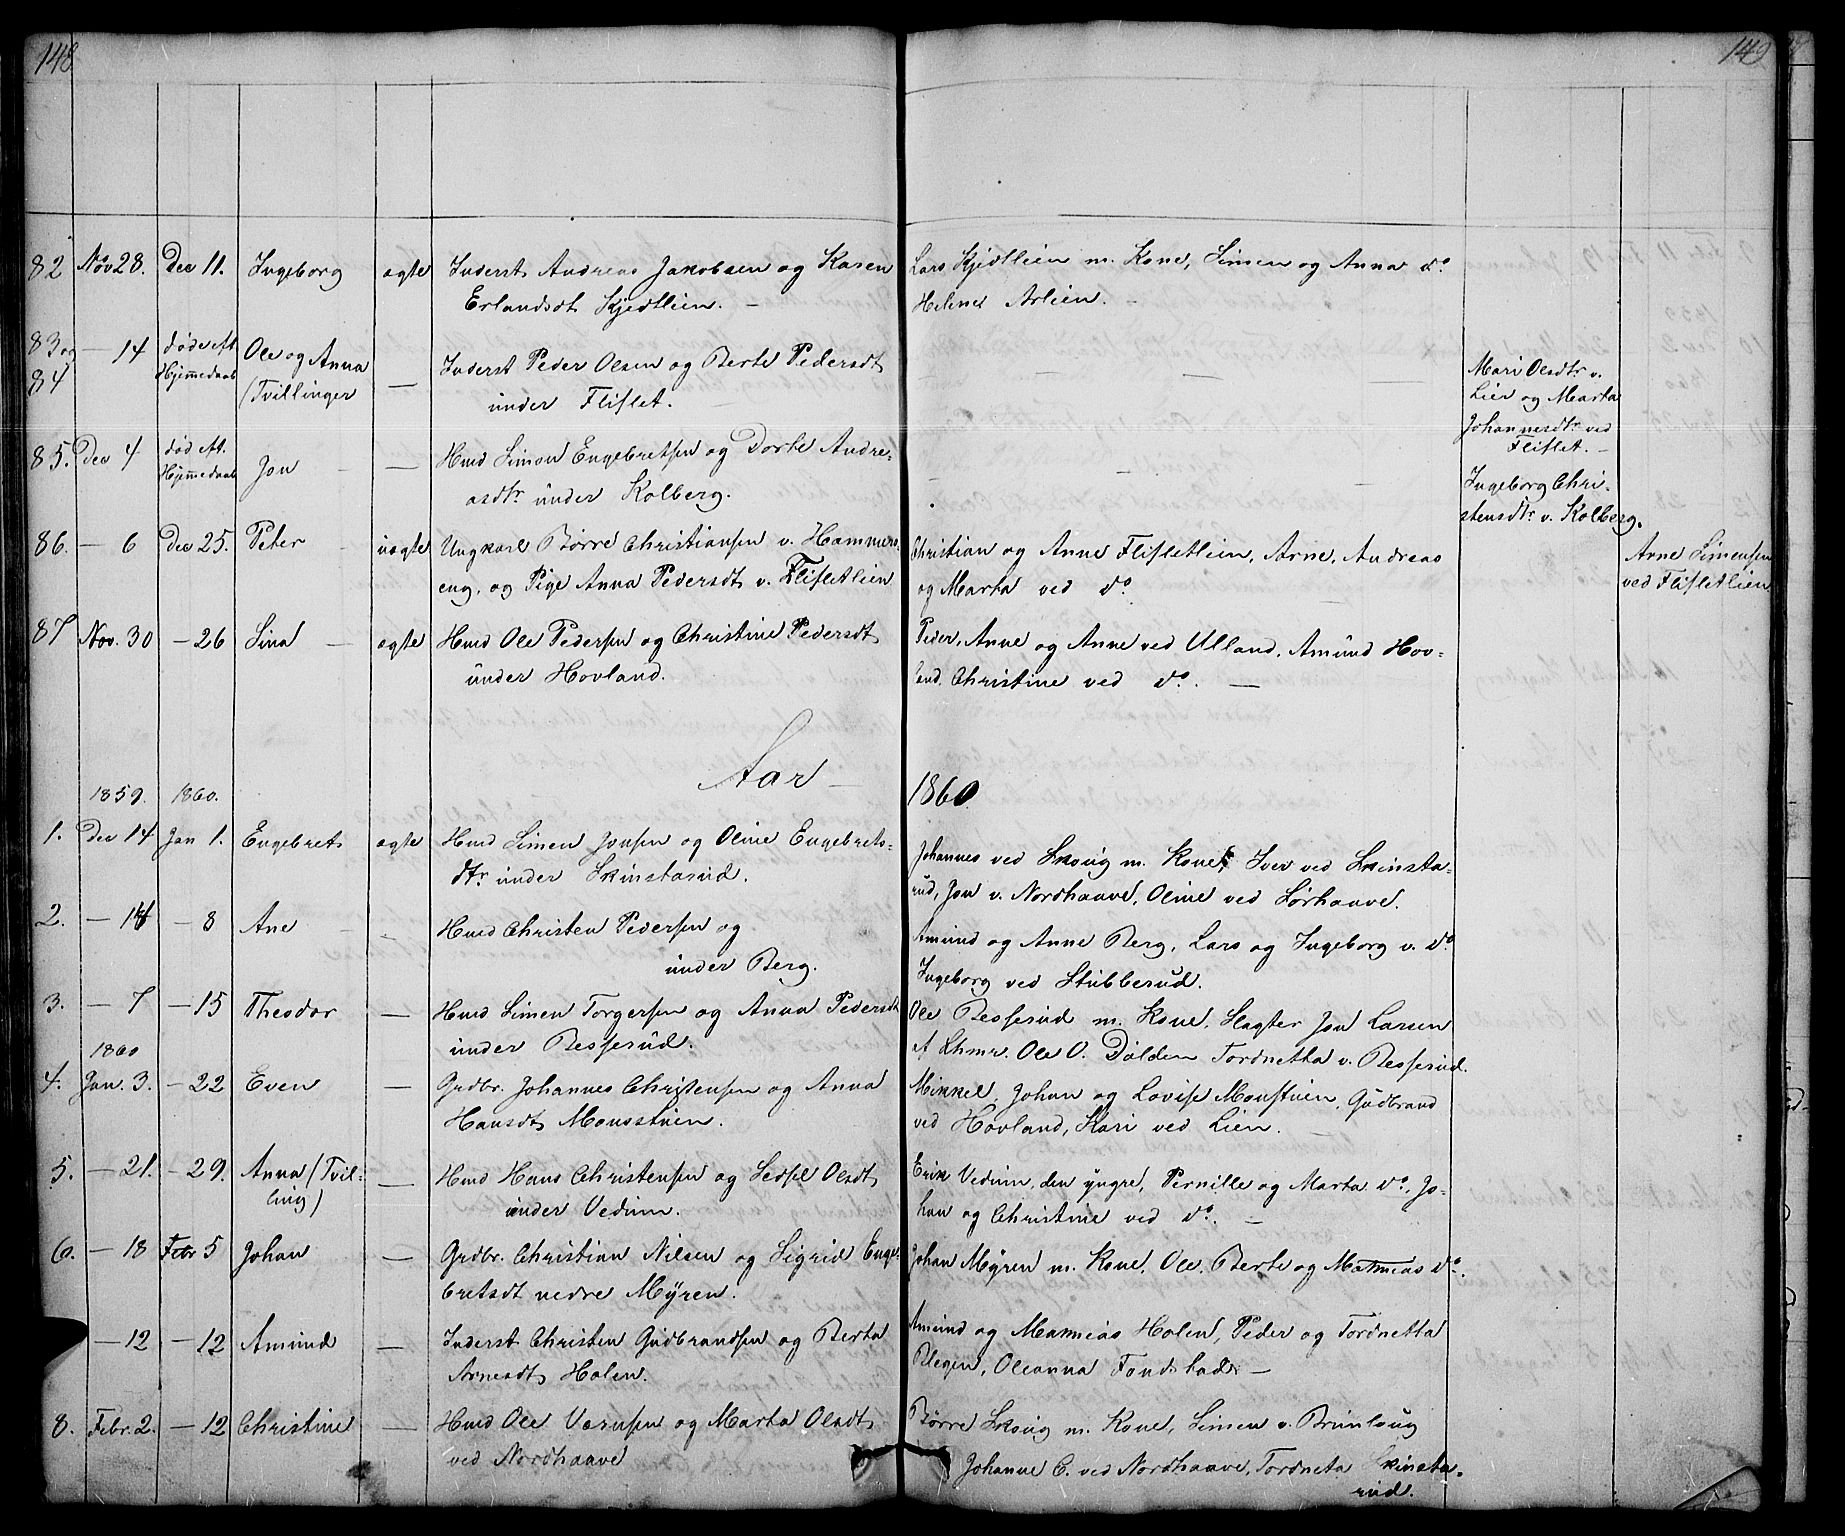 148
149
82 Nov 28. Dec 11. Ingeborg ægte Inderst Andreas Jakobsen og Karen
Erlandsdt Kjedtlien. —
Lars Kjedtlien m. Kone, Simen og Anna do
Helene Arlien.
83 og — 14 døde eft. Ole og Anna
84 Hjemmedaab (Tvillinger —
Inderst Peder Olsen og Berte Pedersdt
under Fliflet.
Mari Olsdtr v.
Lier og Marta
Johannesdtr ved
Fliflet. —
85. Dec 4 død eft.
Hjemmedaab Jon — —
Hmd Simen Engebretsen og Dorte Andre-
asdtr under Kolberg.
Ingeborg Chri-
stensdtr v. Kolberg.
86. — 6 Dec 25. Peter — uægte Ungkarl Børre Christiansen v. Hammers-
eng, og Pige Anna Pedersdt v. Flifletlien
Christian og Anne Flifletlien, Arne, Andreas
og Marta ved do
Arne Simensen
ved Flifletlien
87 Nov. 30 — 26 Lina — ægte Hmd Ole Pedersen og Christine Pedersdt
under Hovland.
Peder, Anne og Anne ved Ulland, Amund Hov-
land, Christine ved do. —
Aar — 1860.
1859. 1860.
1. Dec 14 Jan 1. Engebret ægte Hmd Simen Jonsen og Oline Engebrets-
dtr under Skinstarud.
Johannes ved Skoug m. Kone, Iver ved Skinsta-
rud, Jon v. Nordhaave, Oline ved Sørhaave.
2. — 14 — 8 Ane — Hmd Christen Pedersen og
under Berg.
Amund og Anne Berg, Lars og Ingeborg v. do
Ingeborg ved Stubberud.
3. — 7 — 15 Theodor — Hmd Simen Torgersen og Anna Pedersdt
under Besserud.
Ole Besserud m. Kone, Slagter Jon Larsen
af Lhmr. Ole O. Dølden Tordnetta v. Besserud.
1860
4. Jan. 3. — 22 Even — Grdbr. Johannes Christensen og Anna
Hansdt Monsstuen.
Mikkel, Johan og Lovise Monstuen, Gudbrand
ved Hovland, Kari ved Lien.
5. — 21. — 29. Anna (Tvil-
ling) — Hmd Hans Christensen og Sedsel Olsdt
under Vedum.
Erik Vedum, den yngre, Pernille og Marta do, Jo-
han og Christine ved do. —
6. — 18 Febr 5 Johan — Grdbr. Christian Nilsen og Sigrid Enge-
bretsdt nedre Myren.
Johan Myren m. Kone, Ole, Berte og Mathias do.
— 12 — 12 Amund — Inderst Christen Gudbrandsen og Berta
Arnesdt Holen.
Amund og Mathias Holen, Peder og Tordnetta
Blegen, Oleanna Fondstad —
8. Febr. 2. — 12 Christine — Hmd Ole Larsen og Marta Olsdt
ved Nordhaave
Børre Skoug m. Kone, Simen v. Brunlaug
Johanne C. ved Nordhaave, Tordneta Skinsta-
rud.